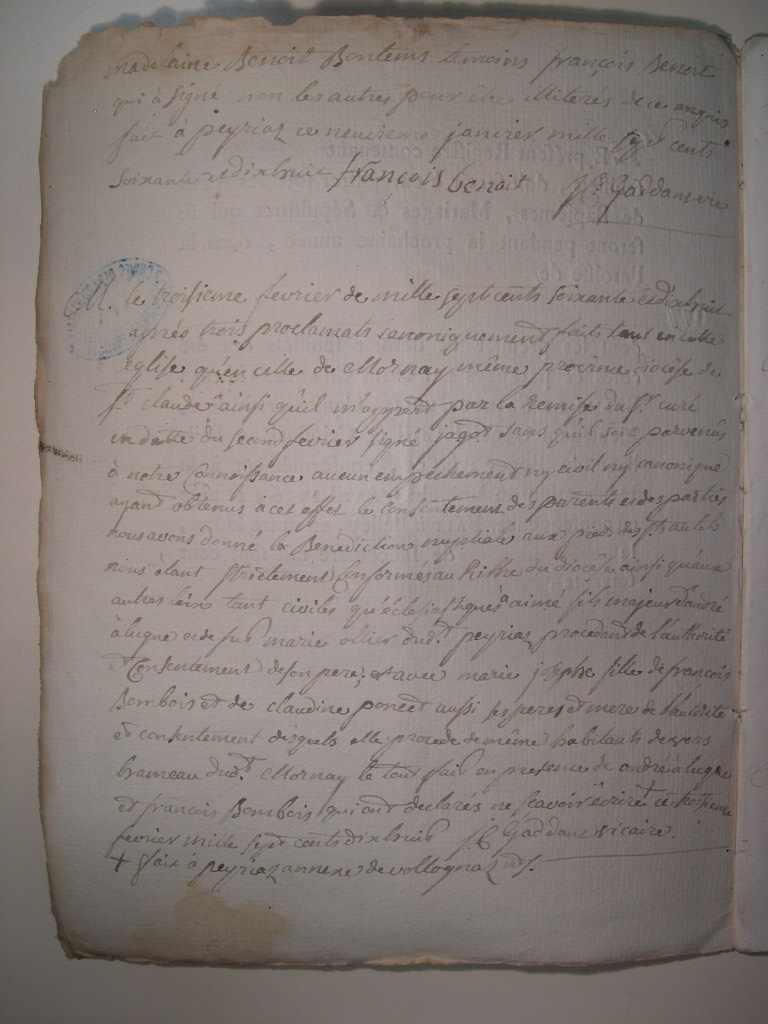 madelaine Benoit Bontems temoins françois Benoit
qui à signé non les autres pour être illiterés de ce enquis
fait à peyriaz ce neuvieme janvier mille sept cents
soixante et dixhuit françois benoit J C Gaddans vic
M. le troisieme fevrier de mille sept cents soixante et dixhuit
après trois proclamats canoniquement faits tant en cette
église qu'en celle de Mornay même province diocèse de
St. claude ainsi qu'il m'apprert par la remise du Sr. curé
en datte du second fevrier signé jagot sans qu'il soit parvenûs
à notre Connoissance aucun empêchement ny civil ny canonique
ayant obtenus à cet éffet le consentement des parents et des parties
nous avons donné la Benediction nuptiale aux pieds des Sts autels
nous étant strictement Conformés au Rithe du diocèse ainsi qu'aux
autres loix tant civiles qu'éclesiastiques a aimé fils majeur d'andré
àlugne et de fue marie ollier dud.t peyriaz procedant de l'authorité
et Consentement de son pere; et avec marie josephe fille de françois
Bombois et de claudine poncet aussi ses peres et mere de l'autorité
et consentement desquels elle procede de même habitants de vers
brameau dud.t Mornay le tout fait en presence de andré àlugne
et françois Bombois qui ont declarés ne scavoir écrire + ce troisieme
fevrier mille sept cents dixhuit J C Gaddans vicaire.
+ fait à peyriaz annexe de vollognaz